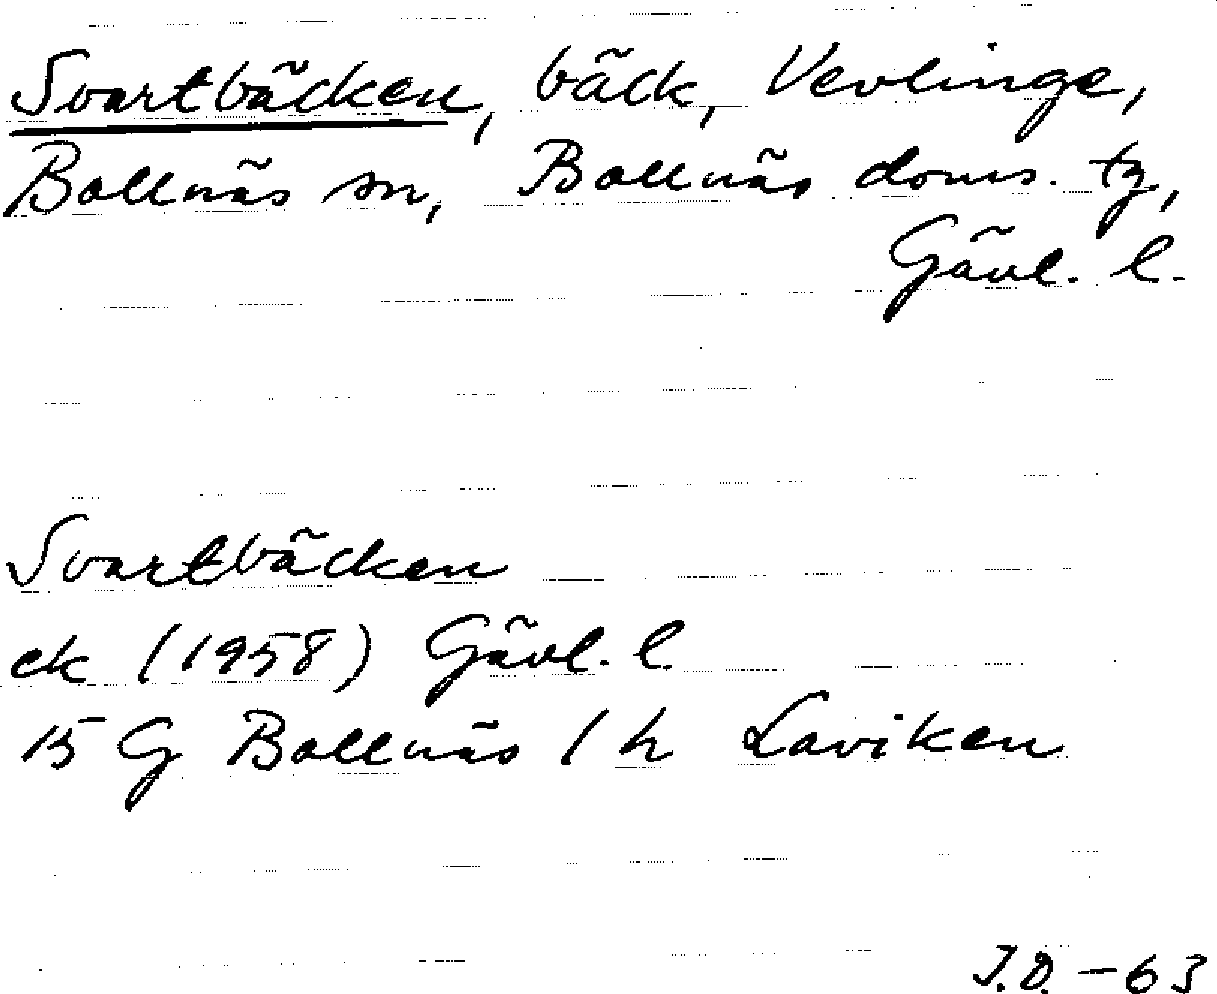 Svartbäcken, bäck, Vevlinge,
Bollnäs sn, Bollnäs doms. tg,
Gävl. l.
Svartbäcken
ek (1958) Gävl. l.
15 G Bollnäs 1 h Laviken
J.Ö. -63